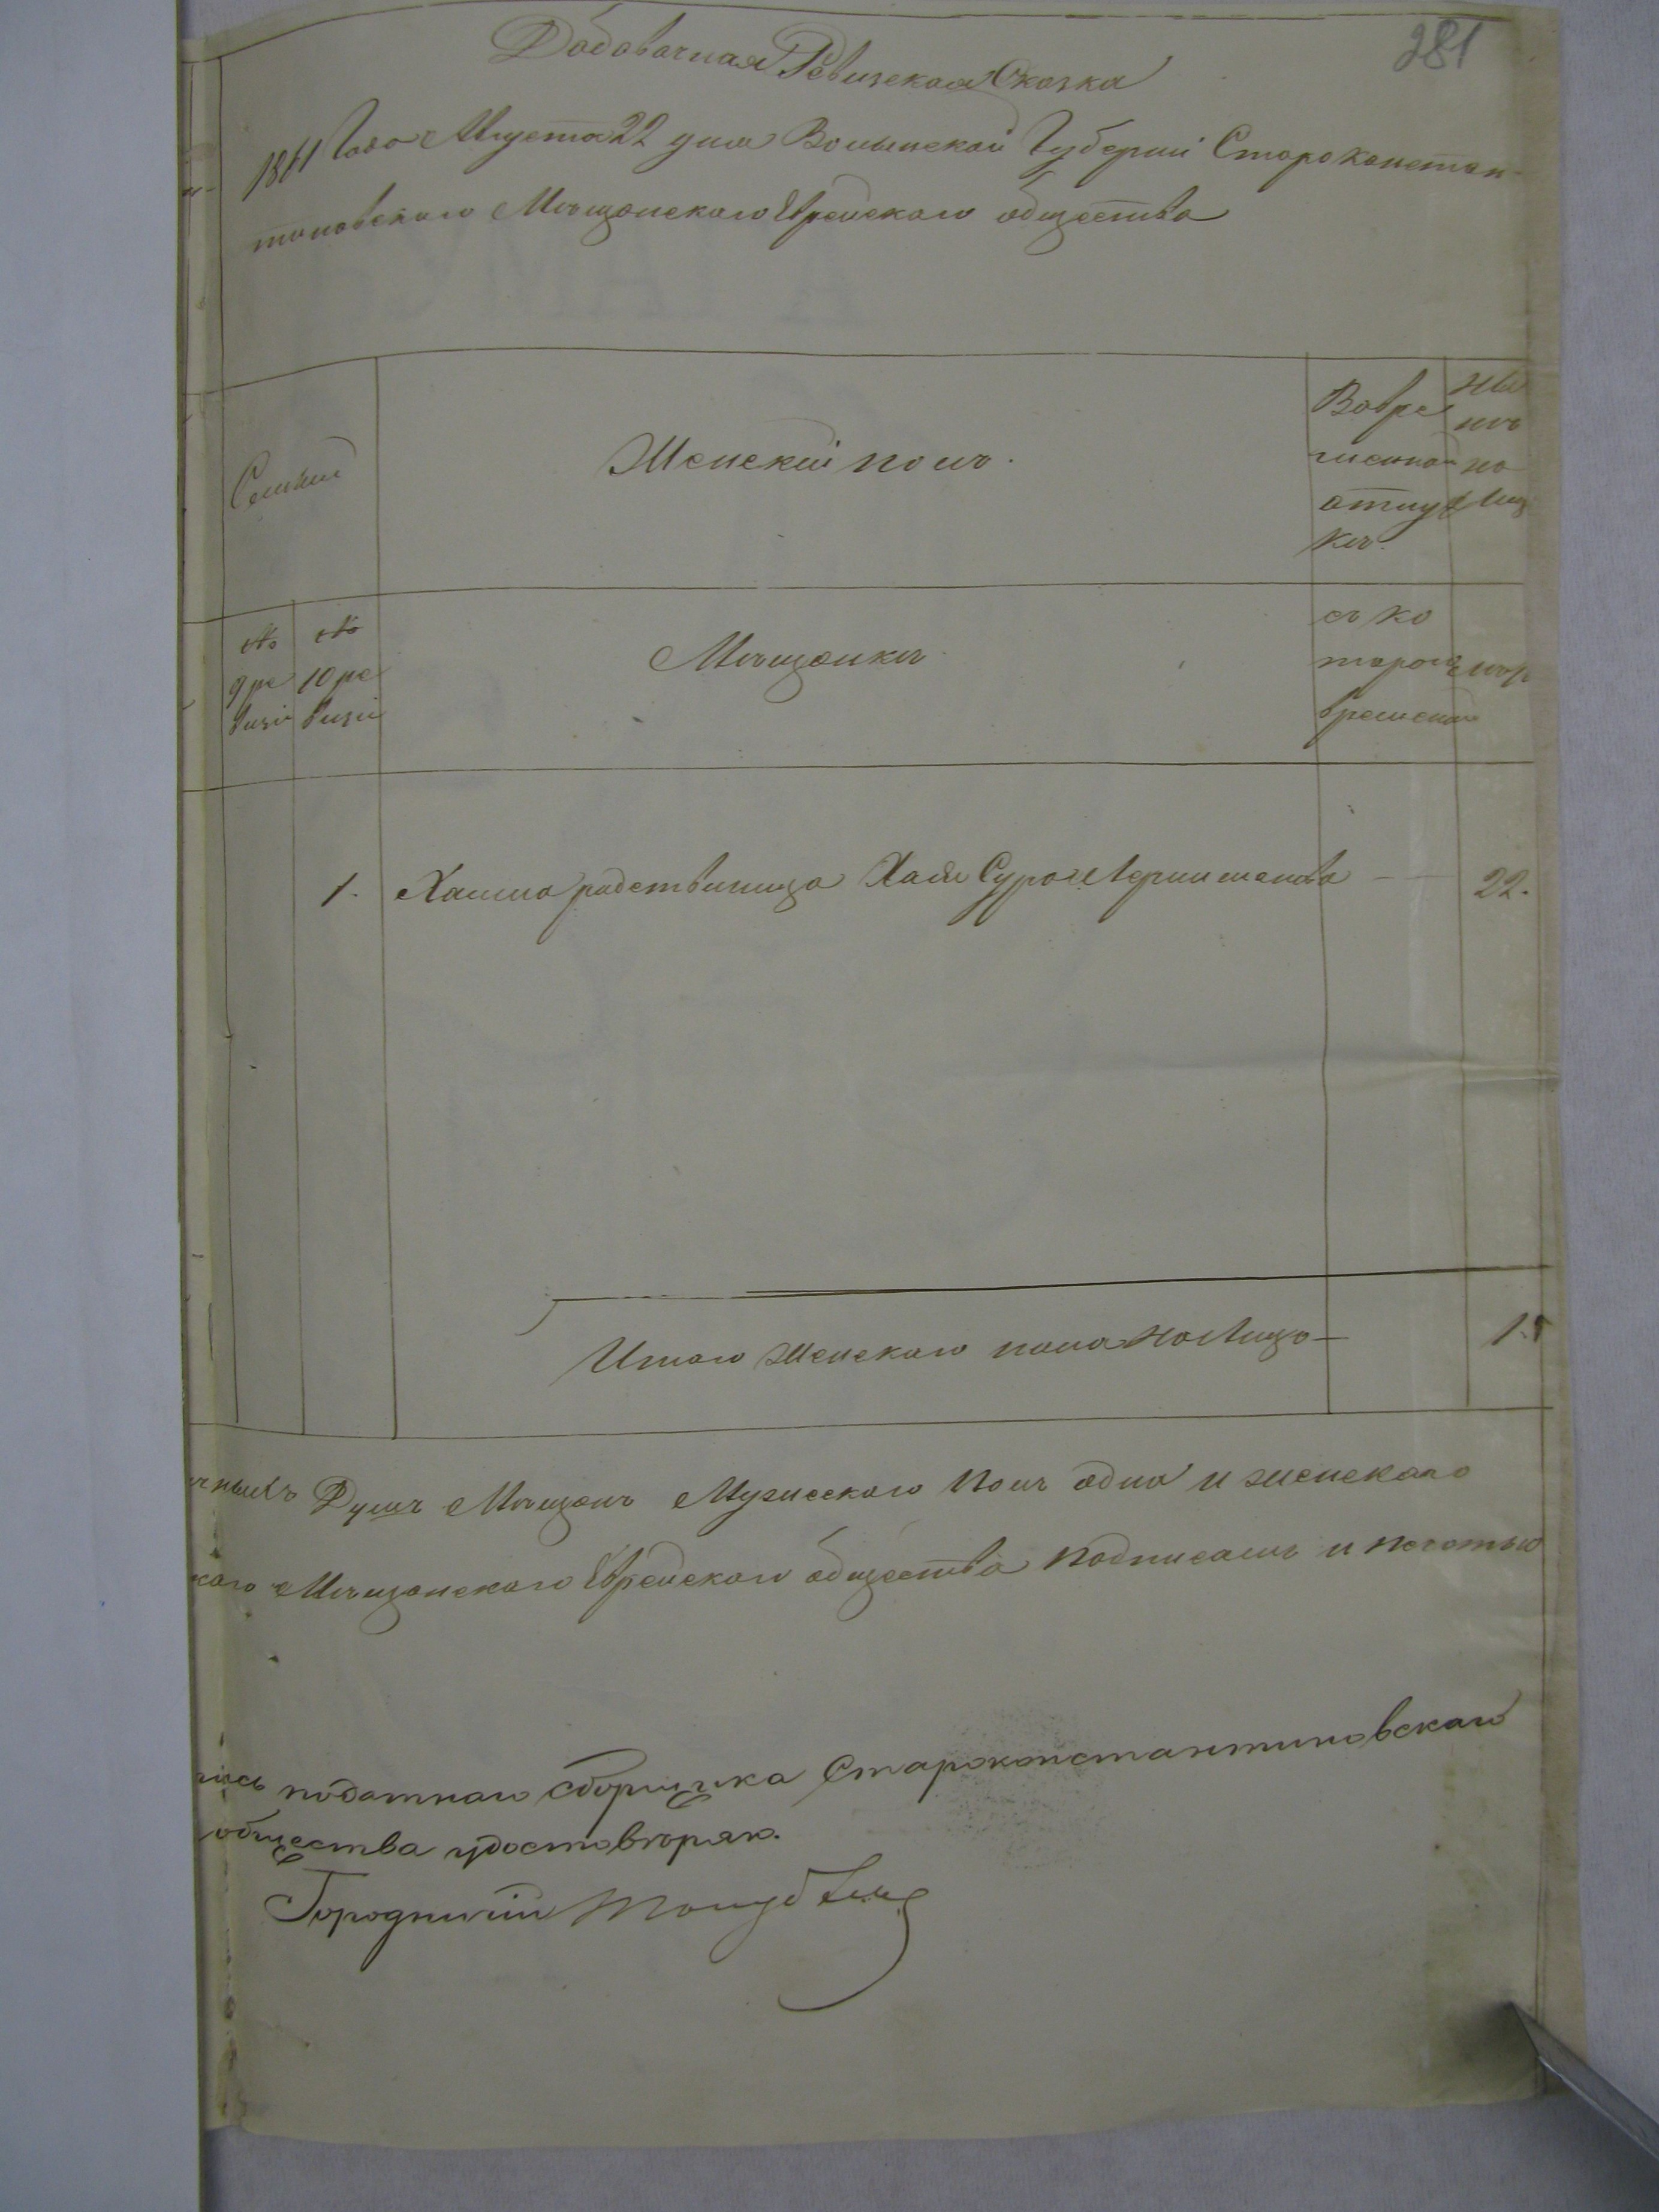 281
Добовачная Ревизская Сказка
1861 Года Августа 22 дня Волынской Губерніи Староконстан-
тиновскаго Мѣщанскаго Еврейскаго общества
Семьи
Женскій полъ.
Вовре
менной
отлуч
кѣ.
Ны
нѣ
на
лиц
№
9 ре
визіи
№
10 ре
визіи
Мѣщанки
съ ко
тораго
времени
лѣт
1. Хаима родственица Хая Сура Леришманова — 22.
Итого женскаго пола на лицо — 1.
чныхъ Душъ Мѣщанъ Мужескаго Полъ одна и женскаго
каго Мѣщанскаго Еврейскаго общества подписалъ и печатью
пись податнаго сборщика Староконстантиновскаго
общества удостовѣряю.
Городничій